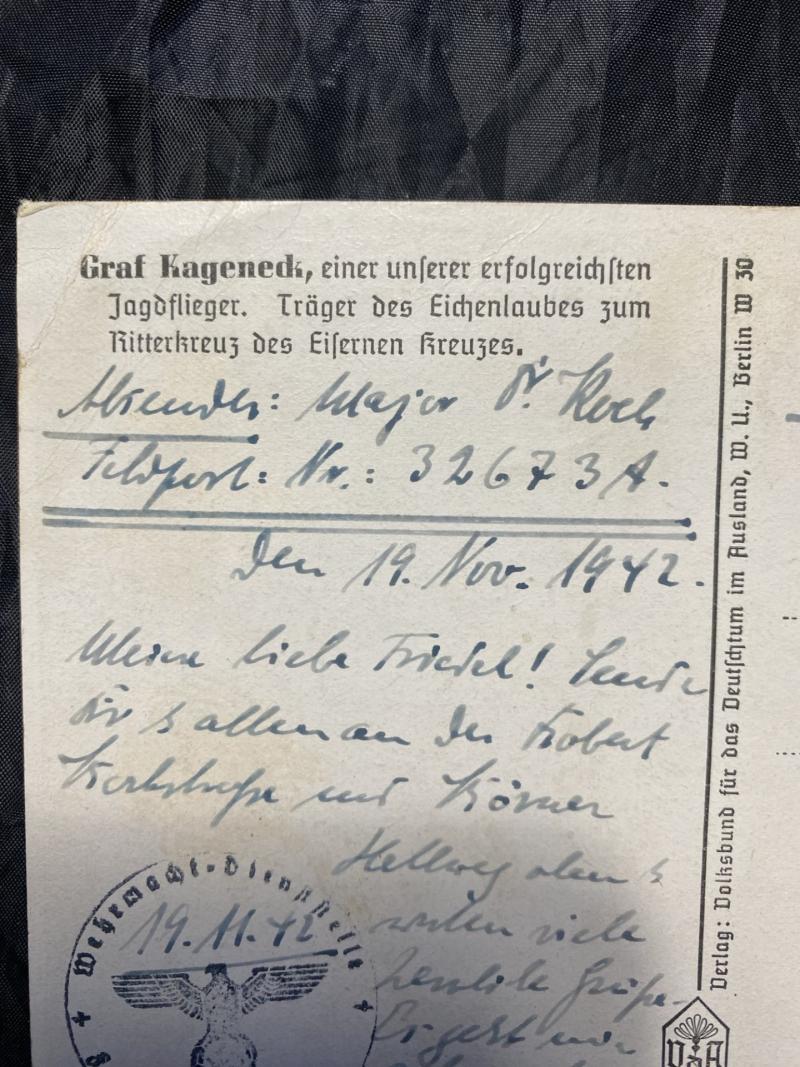 Graf Kageneck, einer unserer erfolgreichsten
Jagdflieger. Träger des Eichenlaubes zum
Ritterkreuz des Eisernen Kreuzes.
Absender: Major Dr. Koch
Feldpost: Nr.: 32673 A.
Den 19. Nov. 1942.
Meine liebe Friedel! Sende
Dir & allen an der Robert
Kochstraße und Körner
Hellweg oben &
unten viele
herzliche Grüße.
Es geht mir
Wehrmacht-Dienststelle
19.11.42
Verlag: Volksbund für das Deutschtum im Ausland, W. U., Berlin W 30
VDA